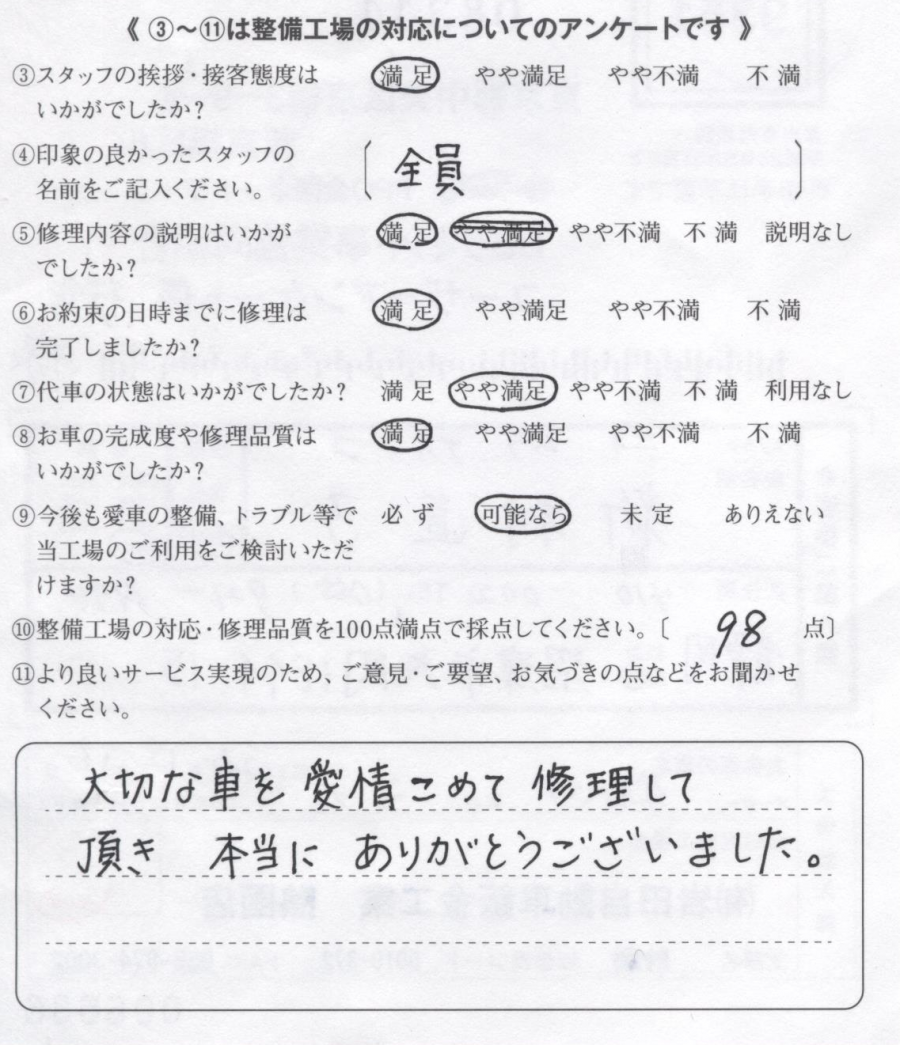 《 ③～⑪は整備工場の対応についてのアンケートです 》
③スタッフの挨拶・接客態度は 満 足 やや満足 やや不満 不 満
いかがでしたか?
④印象の良かったスタッフの 〔 全員 〕
名前をご記入ください。
⑤修理内容の説明はいかが 満 足 やや満足 やや不満 不 満 説明なし
でしたか?
⑥お約束の日時までに修理は 満 足 やや満足 やや不満 不 満
完了しましたか?
⑦代車の状態はいかがでしたか? 満 足 やや満足 やや不満 不 満 利用なし
⑧お車の完成度や修理品質は 満 足 やや満足 やや不満 不 満
いかがでしたか?
⑨今後も愛車の整備、トラブル等で 必 ず 可能なら 未 定 ありえない
当工場のご利用をご検討いただ
けますか?
⑩整備工場の対応・修理品質を100点満点で採点してください。〔 98 点〕
⑪より良いサービス実現のため、ご意見・ご要望、お気づきの点などをお聞かせ
ください。
大切な車を 愛情こめて 修理して
頂き 本当に ありがとうございました。